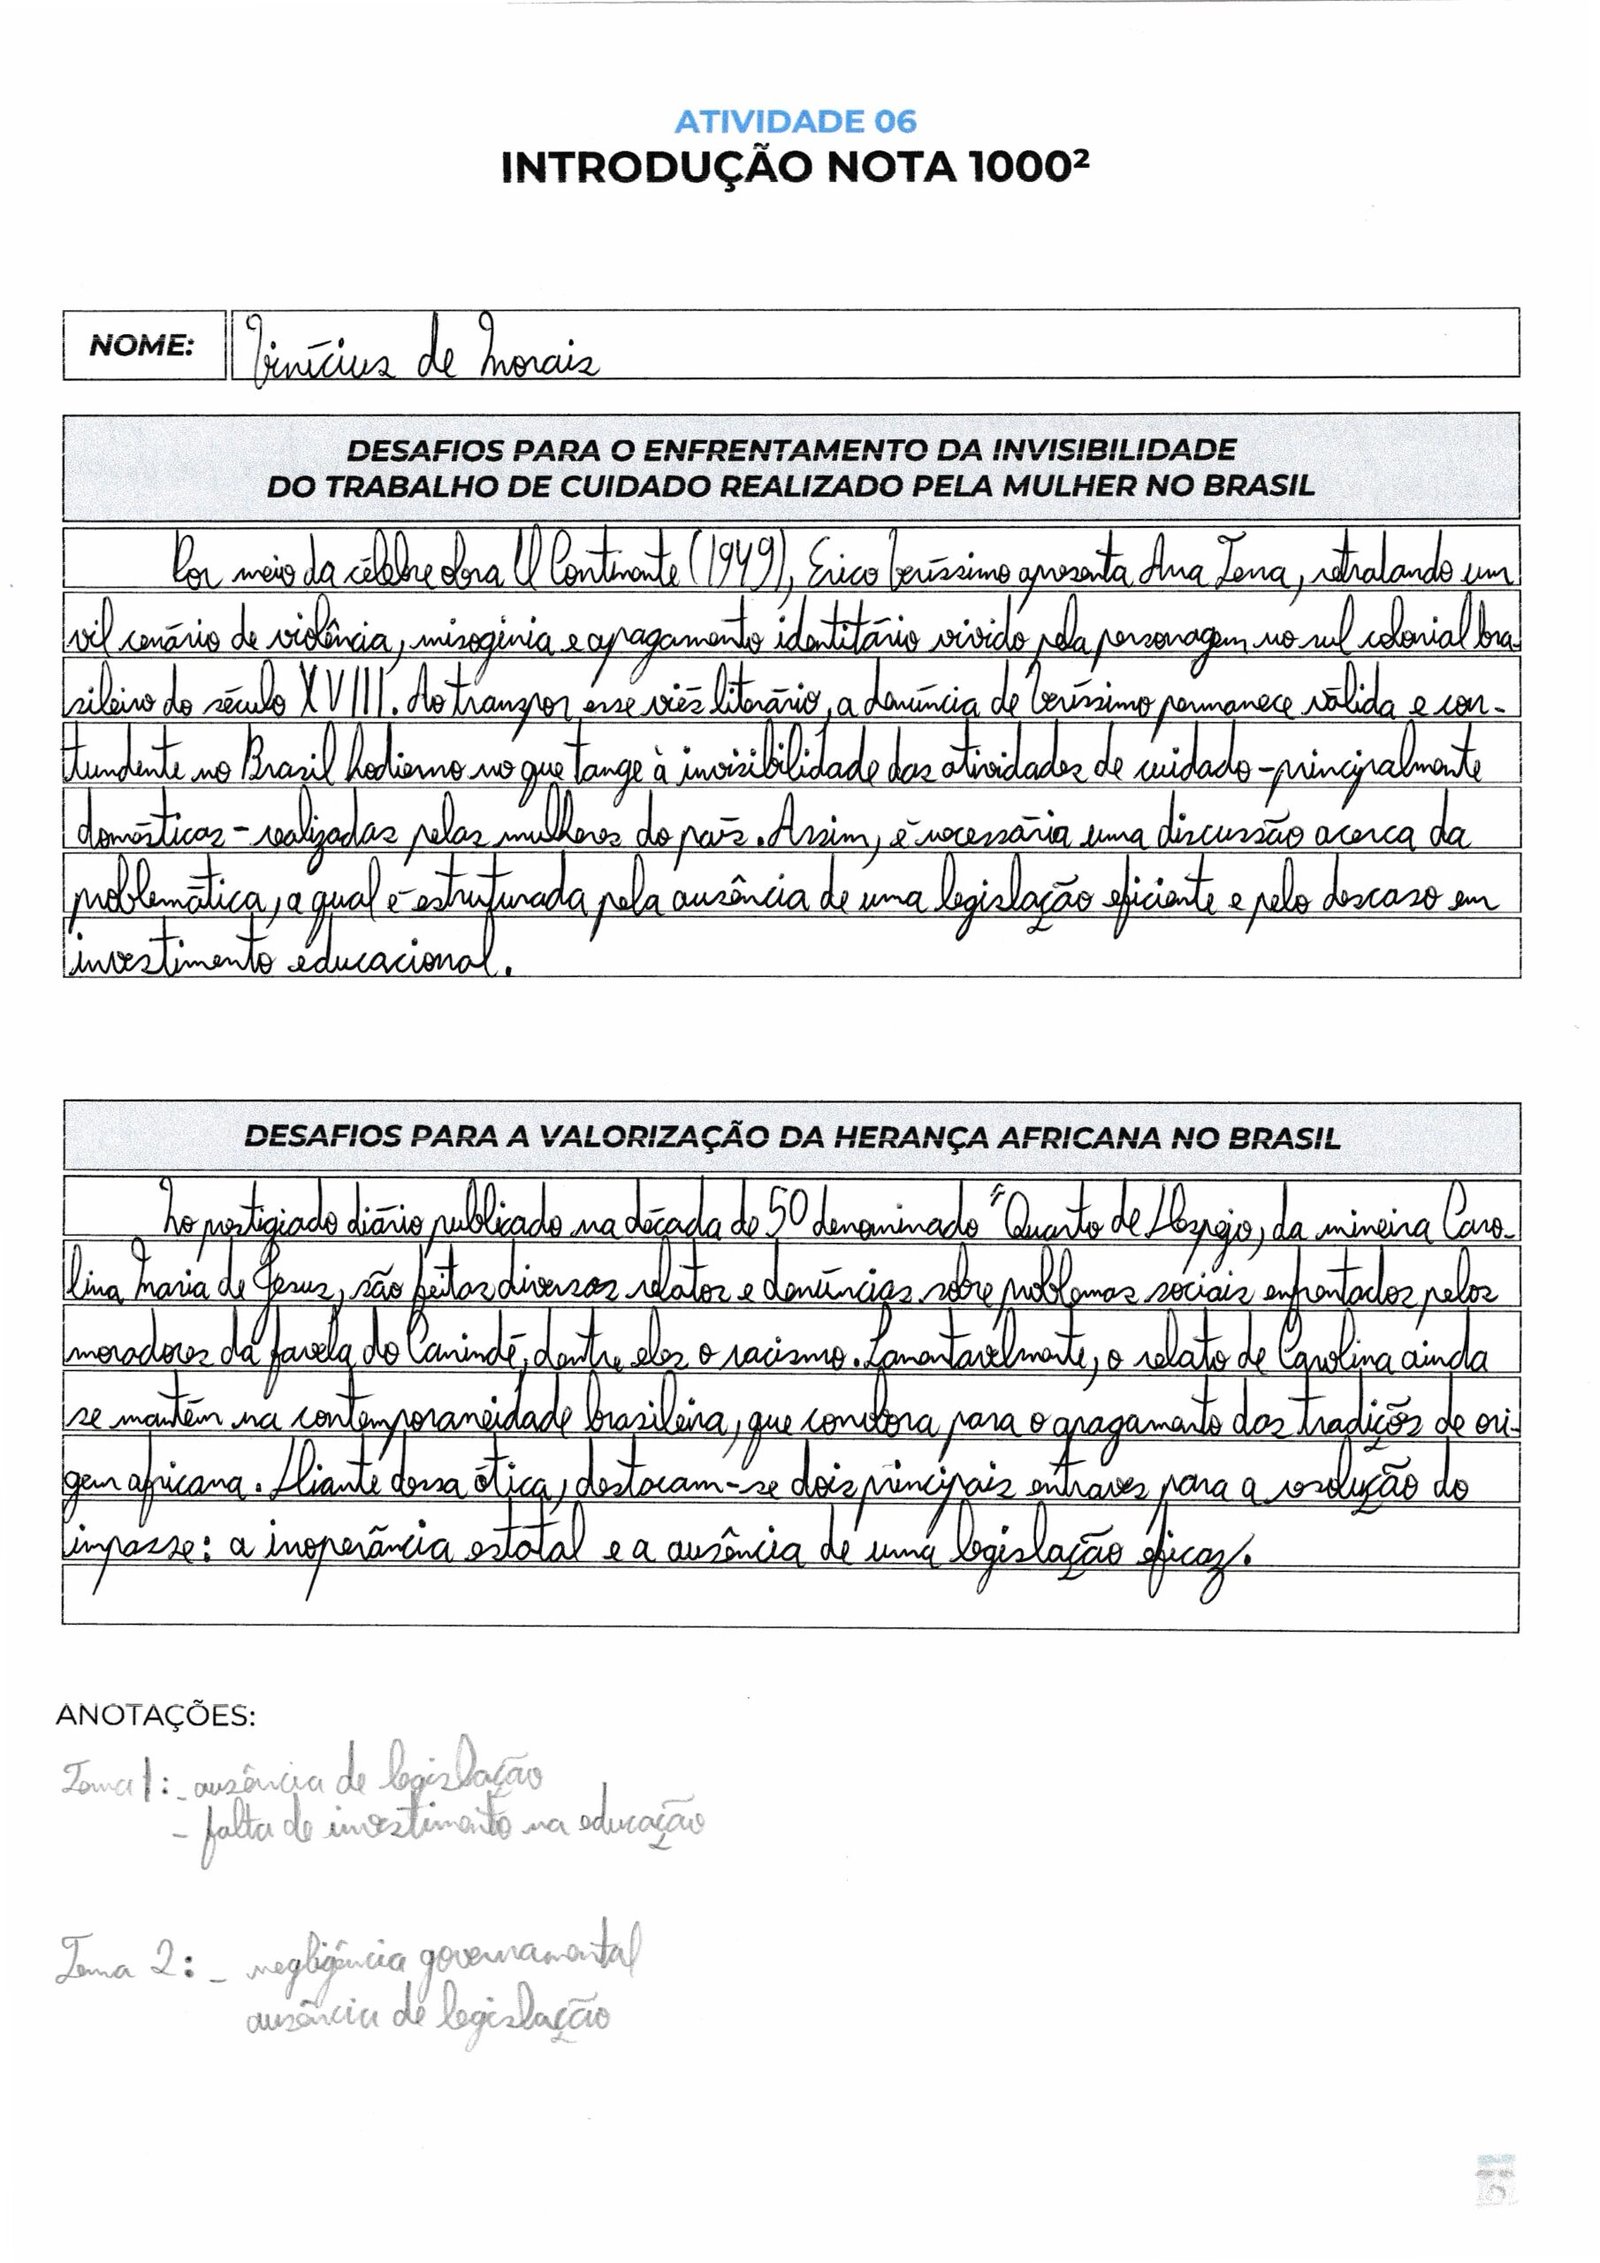 ATIVIDADE 06
INTRODUÇÃO NOTA 1000²
NOME: Vinícius de Morais
DESAFIOS PARA O ENFRENTAMENTO DA INVISIBILIDADE
DO TRABALHO DE CUIDADO REALIZADO PELA MULHER NO BRASIL
Por meio da célebre obra O Continente (1949), Erico Veríssimo apresenta Ana Terra, retratando um
vil cenário de violência, misoginia e apagamento identitário vivido pela personagem no sul colonial bra-
sileiro do século XVIII. Ao transpor esse viés literário, a denúncia de Veríssimo permanece válida e con-
tundente no Brasil hodierno no que tange à invisibilidade das atividades de cuidado - principalmente
domésticas - realizadas pelas mulheres do país. Assim, é necessária uma discussão acerca da
problemática, a qual é estruturada pela ausência de uma legislação eficiente e pelo descaso em
investimento educacional.
DESAFIOS PARA A VALORIZAÇÃO DA HERANÇA AFRICANA NO BRASIL
No prestigiado diário publicado na década de 50 denominado "Quarto de Despejo, da mineira Caro-
lina Maria de Jesus, são feitos diversos relatos e denúncias sobre problemas sociais enfrentados pelos
moradores da favela do Canindé, dentre eles o racismo. Lamentavelmente, o relato de Carolina ainda
se mantém na contemporaneidade brasileira, que corrobora para o apagamento das tradições de ori-
gem africana. Diante dessa ótica, destacam-se dois principais entraves para a resolução do
impasse: a inoperância estatal e a ausência de uma legislação eficaz.
ANOTAÇÕES:
Tema 1: - ausência de legislação
- falta de investimento na educação
Tema 2: - negligência governamental
ausência de legislação